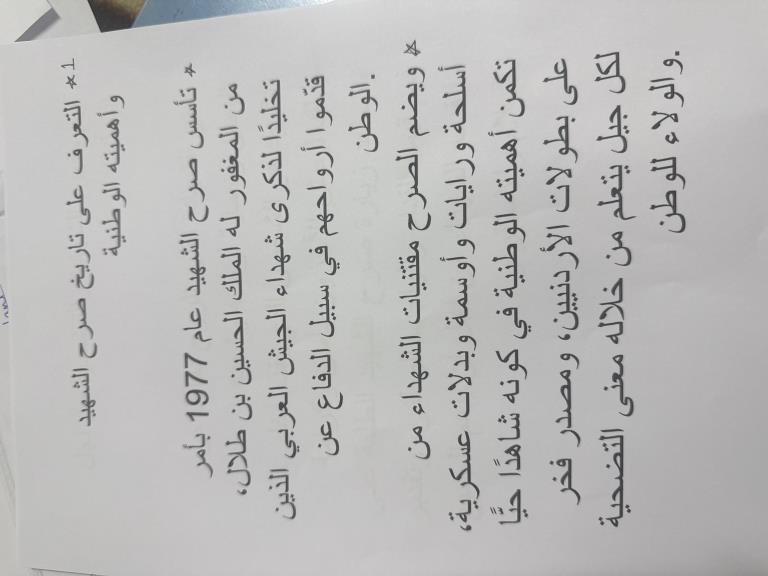 1* التعرف على تاريخ صرح الشهيد
وأهميته الوطنية
* تأسس صرح الشهيد عام 1977 بأمر
من المغفور له الملك الحسين بن طلال،
تخليدًا لذكرى شهداء الجيش العربي الذين
قدّموا أرواحهم في سبيل الدفاع عن
.الوطن
* ويضم الصرح مقتنيات الشهداء من
أسلحة ورايات وأوسمة وبدلات عسكرية،
تكمن أهميته الوطنية في كونه شاهدًا حيًّا
على بطولات الأردنيين، ومصدر فخر
لكل جيل يتعلم من خلاله معنى التضحية
.والولاء للوطن